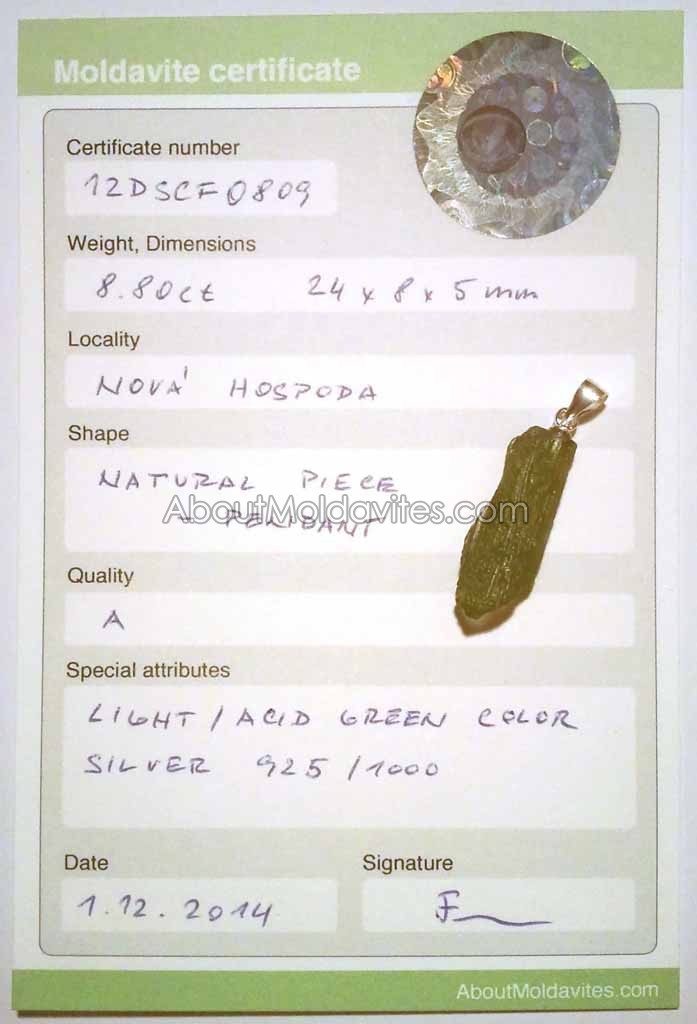 Moldavite certificate
Certificate number
12DSCF0809
Weight, Dimensions
8.80ct 24 x 8 x 5 mm
Locality
NOVÁ HOSPODA
Shape
NATURAL PIECE
AboutMoldavites.com
- PENDANT
Quality
A
Special attributes
LIGHT / ACID GREEN COLOR
SILVER 925 / 1000
Date Signature
1.12.2014
AboutMoldavites.com